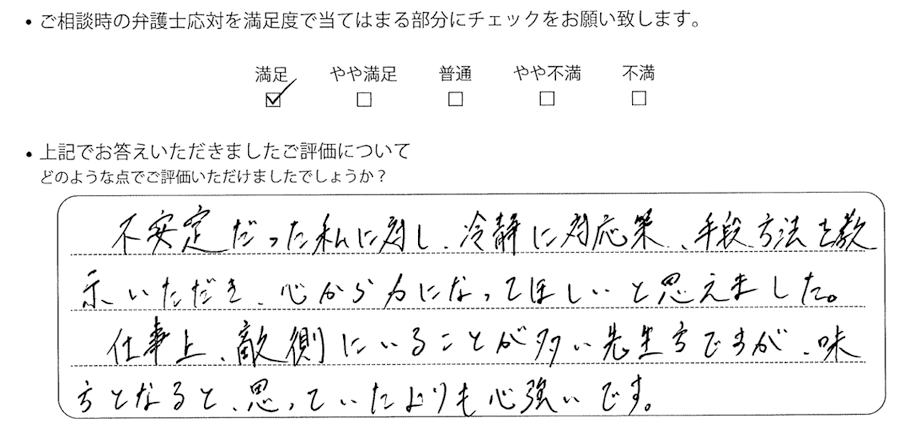 ・ご相談時の弁護士応対を満足度で当てはまる部分にチェックをお願い致します。
満足 やや満足 普通 やや不満 不満
・上記でお答えいただきましたご評価について
どのような点でご評価いただけましたでしょうか？
不安定だった私に対し、冷静に対応策、手段方法を教
示いただき、心から力になってほしいと思えました。
仕事上、敵側にいることが多い先生方ですが、味
方となると、思っていたよりも心強いです。